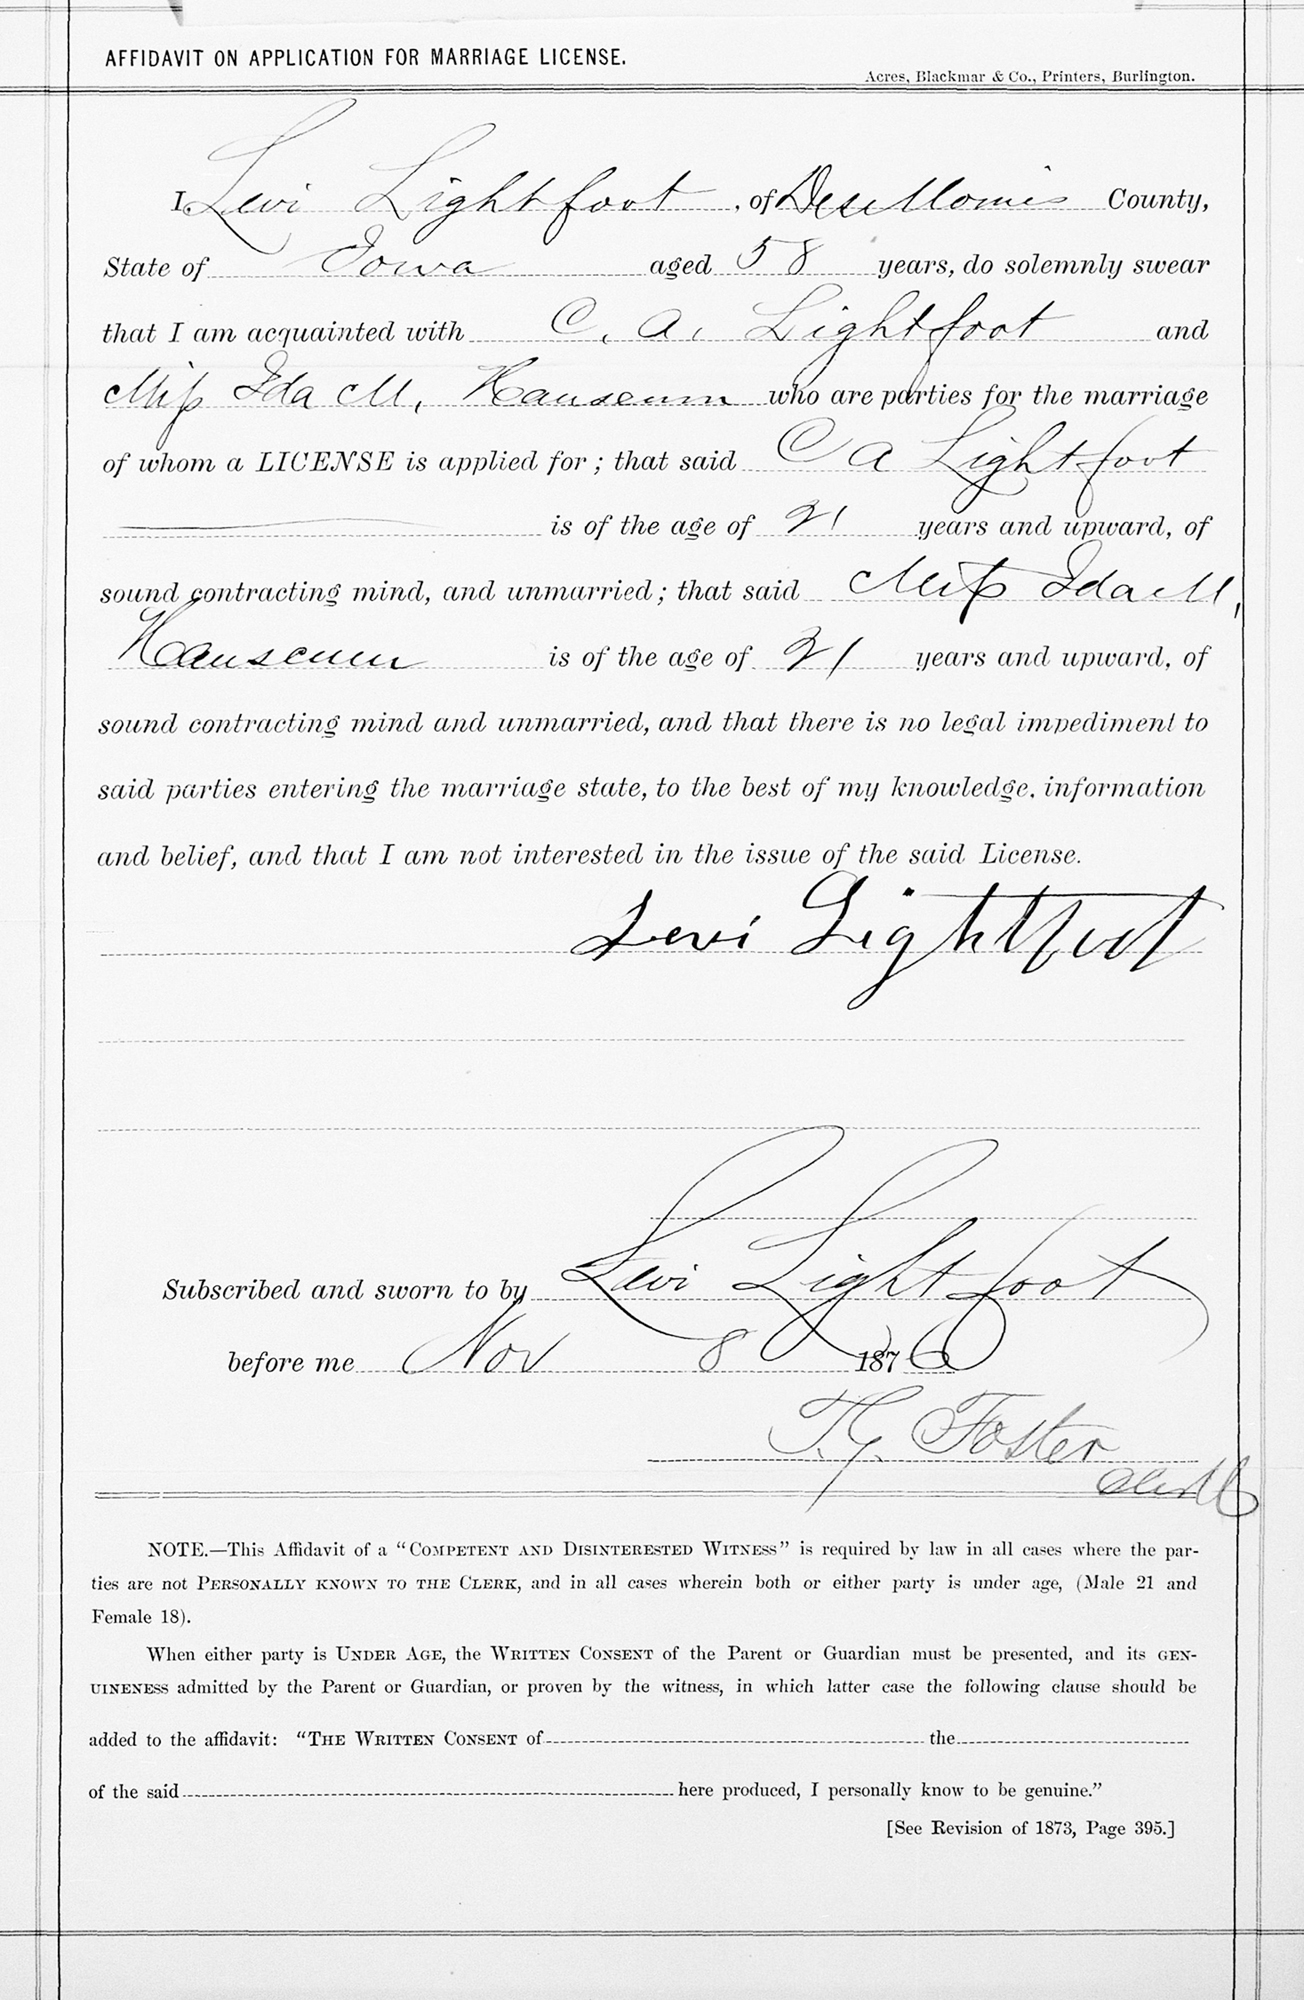 AFFIDAVIT ON APPLICATION FOR MARRIAGE LICENSE.
Acres, Blackmar & Co., Printers, Burlington.
I, Levi Lightfoot, of Des Moines County,
State of Iowa aged 58 years, do solemnly swear
that I am acquainted with C. A. Lightfoot and
Miss Ida M. who are parties for the marriage
of whom a LICENSE is applied for; that said C A Lightfoot
is of the age of 21 years and upward, of
sound contracting mind, and unmarried; that said Miss Ida M.
is of the age of 21 years and upward, of
sound contracting mind and unmarried, and that there is no legal impediment to
said parties entering the marriage state, to the best of my knowledge, information
and belief, and that I am not interested in the issue of the said License.
Levi Lightfoot
Subscribed and sworn to by Levi Lightfoot
before me Nov 8 1876
T. G. Foster
Clerk
NOTE.—This Affidavit of a "COMPETENT AND DISINTERESTED WITNESS" is required by law in all cases where the par-
ties are not PERSONALLY KNOWN TO THE CLERK, and in all cases wherein both or either party is under age, (Male 21 and
Female 18).
When either party is UNDER AGE, the WRITTEN CONSENT of the Parent or Guardian must be presented, and its GEN-
UINENESS admitted by the Parent or Guardian, or proven by the witness, in which latter case the following clause should be
added to the affidavit: "THE WRITTEN CONSENT of the
of the said here produced, I personally know to be genuine."
[See Revision of 1873, Page 395.]